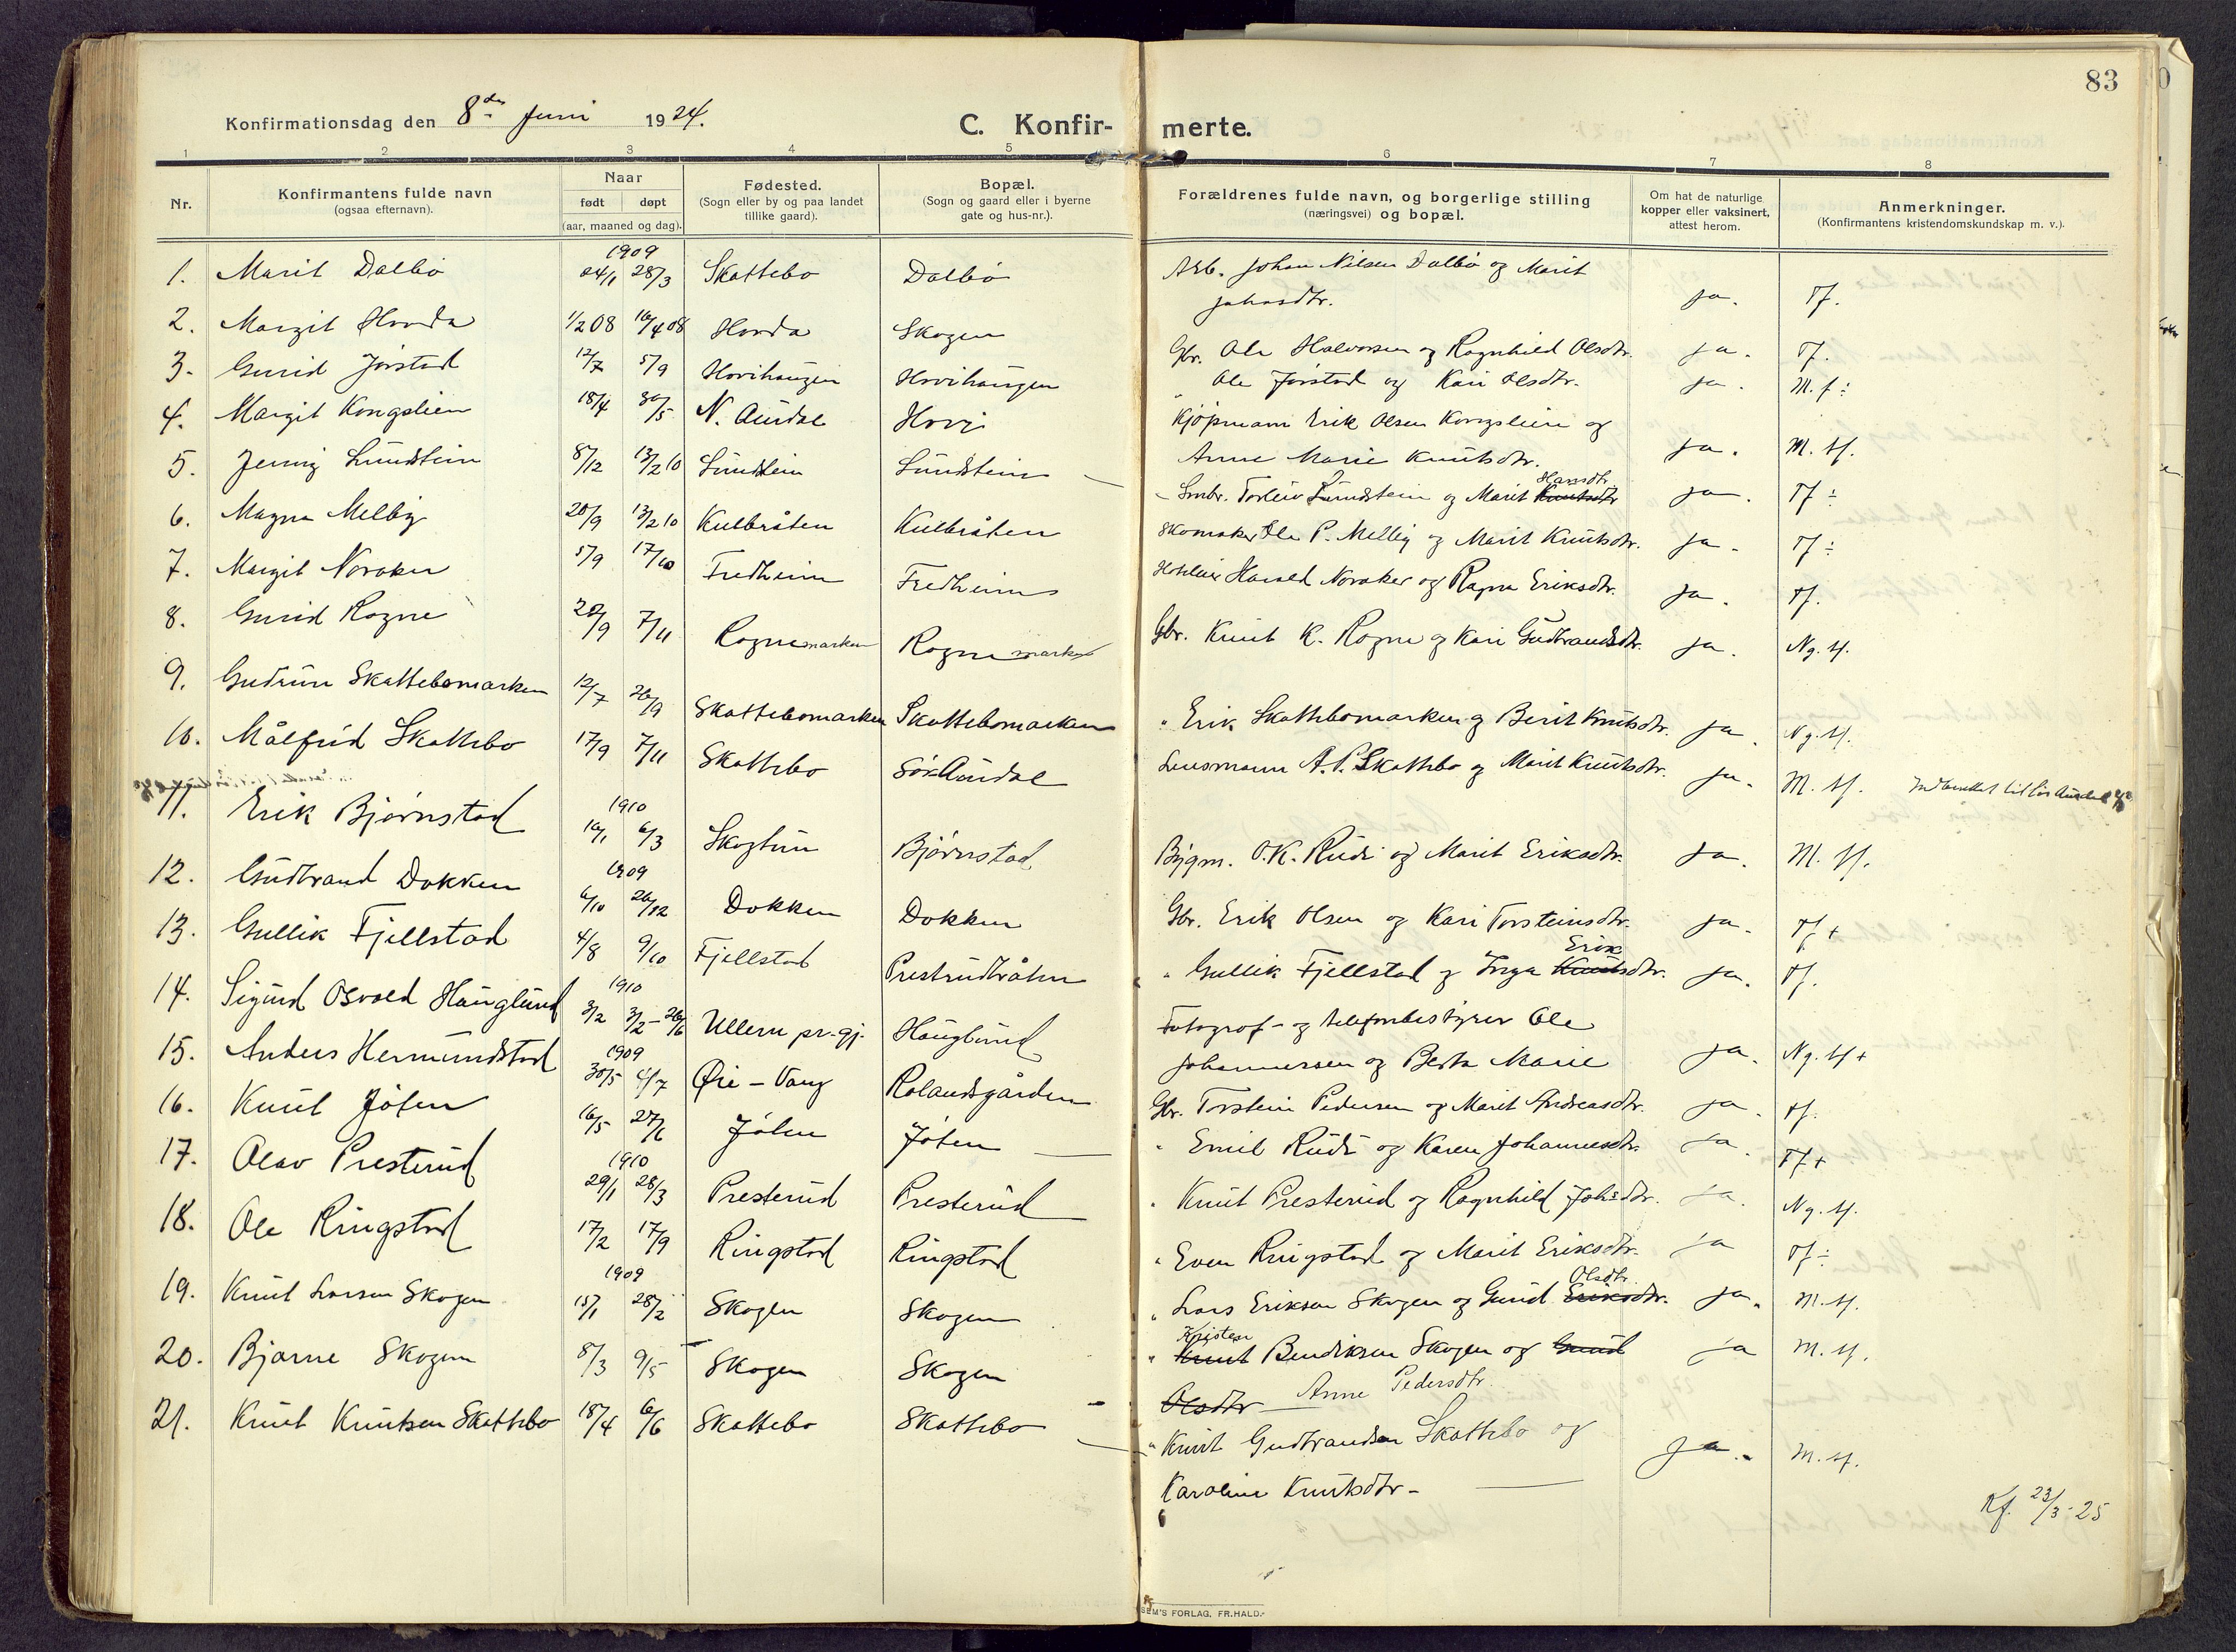 83
Konfirmationsdag den 8de Juni 1924.
C. Konfir- merte.
1 2 3 4 5 6 7 8
Nr.
Konfirmantens fulde navn
(ogsaa efternavn).
Naar
født døpt
(aar, maaned og dag).
Fødested.
(Sogn eller by og paa landet
tillike gaard).
Bopæl.
(Sogn og gaard eller i byerne
gate og hus-nr.).
Forældrenes fulde navn, og borgerlige stilling
(næringsvei) og bopæl.
Om hat de naturlige
kopper eller vaksinert,
attest herom.
Anmerkninger.
(Konfirmantens kristendomskundskap m. v.).
1909
1. Marit Dalbø 24/1 28/3 Skattebo Dalbø Arb. Johan Nilsen Dalbø og Marit
Johasdtr. ja. Tf.
2. Margit Hovda 1/2 08 16/4 08 Hovda Skogen Gbr. Ole Halvorsen og Ragnhild Olsdtr. ja. Tf.
3. Gunrid Jørstad 12/7 5/9 Hovihaugen Hovihaugen " Ole Jørstad og Kari Olsdtr. ja. M. f ÷
4. Margit Kongslien 18/4 30/5 N. Aurdal Hovi Kjøpmann Erik Olsen Kongslien og
Anne Marie Knutsdtr. ja. M. tf.
5. Jenny Lundstein 8/12 13/2 10 Lundstein Lundstein Smbr. Torleiv Lundstein og Marit Knutsdtr Hansdtr. ja. Tf ÷
6. Magna Melby 20/9 13/2 10 Kulbråten Kulbråten Skomaker Ole P. Melby og Marit Knutsdtr. ja. Tf ÷
7. Margit Noraker 5/9 17/10 Fredheim Fredheim Harald Noraker og Ragna Eriksdtr. ja. Tf.
8. Gunrid Rogne 20/9 7/11 Rognemarken Rognemarken Gbr. Knut K. Rogne og Kari Gudbrandsdtr. ja. Ng. tf.
9. Gudrun Skattebomarken 12/7 26/9 Skattebomarken Skattebomarken " Erik Skattebomarken og Berit Knutsdtr. ja. Ng. tf.
10. Målfrid Skattebo 17/9 7/11 Skattebo Sør Aurdal Lensmann A. P. Skattebo og Marit Knutsdtr. ja. M. tf. Indberettet til Sør Aurdal
1910
11. Erik Bjørnstad 16/1 6/3 Skogtun Bjørnstad Bygm. O. K. Rudi og Marit Eriksdtr. ja. M. tf.
1909
12. Gudbrand Dokken 6/10 26/12 Dokken Dokken Gbr. Erik Olsen og Kari Torsteinsdtr. ja. Tf +
13. Gullik Fjellstad 4/8 9/10 Fjellstad Prestrudbråten " Gullik Fjellstad og Inga Knutsdtr. Erik ja. Tf.
1910
14. Sigurd Osvald Hauglund 3/2 3/2 - 26/6 Ullern pr.gj. Hauglund Fotograf- og telefonbestyrer Ole
Johannessen og Berta Marie ja. Ng. tf +
1909
15. Anders Hermundstad 30/5 4/7 Øie - Vang Rolandsgården Gbr. Torstein Pedersen og Marit Andreasdtr. ja. tf.
16. Knut Jøten 16/5 27/6 Jøten Jøten " Emil Rudi og Karen Johannesdtr. ja. Tf +
1910
17. Olav Presterud 29/1 28/3 Presterud Presterud " Knut Presterud og Ragnhild Johsdtr. ja. Ng. tf.
18. Ole Ringstad 17/2 17/9 Ringstad Ringstad " Even Ringstad og Marit Eriksdtr. ja Tf ÷
1909
19. Knut Larsen Skogen 15/1 28/2 Skogen Skogen " Lars Eriksen Skogen og Gunrid Eriksdtr. Olsdtr. ja. M. tf.
20. Bjarne Skogen 8/3 9/5 Skogen Skogen " Knut Kristen Bendiksen Skogen og Gunrid
Olsdtr Anne Pedersdtr. ja M. tf.
21. Knut Knutsen Skattebo 18/4 6/6 Skattebo Skattebo " Knut Gudbrandsen Skattebo og
Karoline Knutsdtr. ja. M. tf.
Kf. 23/3-25
SEM'S FORLAG, FR.HALD.